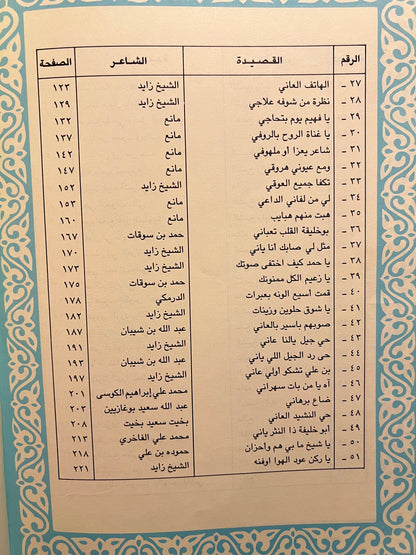 الرقم القصيدة الشاعر الصفحة
٢٧ ـ الهاتف العاني الشيخ زايد ١٢٣
٢٨ ـ نظرة من شوفه علاجي الشيخ زايد ١٢٩
٢٩ ـ يا فهيم يوم بتحاجي مانع ١٣٢
٣٠ ـ يا غناة الروح بالروفي مانع ١٣٧
٣١ ـ شاعر يعزا أو ملهوفي مانع ١٤٢
٣٢ ـ ومع عيوني هروقي مانع ١٤٧
٣٣ ـ تكفا جميع العوقي الشيخ زايد ١٥٢
٣٤ ـ لي من لفاني الداعي مانع ١٥٣
٣٥ ـ هبت منهم هبايب مانع ١٦٠
٣٦ ـ بوخليفة القلب تعباني حمد بن سوقات ١٦٧
٣٧ ـ مثل لي صابك انا ياني الشيخ زايد ١٧٠
٣٨ ـ يا حمد كيف اختفى صوتك الشيخ زايد ١٧٣
٣٩ ـ يا زعيم الكل ممنونك حمد بن سوقات ١٧٥
٤٠ ـ قمت أسيع الونه بعبرات الدرمكي ١٧٨
٤١ ـ يا شوق حلوين وزينات الشيخ زايد ١٨٢
٤٢ ـ صوبهم ياسير بالعاني عبد الله بن شيبان ١٨٧
٤٣ ـ حي جيل يالنا عاني الشيخ زايد ١٩١
٤٤ ـ حى رد الجيل اللي ياني عبد الله بن شيبان ١٩٣
٤٥ ـ بن علي تشكو أولي عاني الشيخ زايد ١٩٧
٤٦ ـ آه يا من بات سهراني محمد علي إبراهيم الكوسى ٢٠١
٤٧ ـ ضاع برهاني عبد الله سعيد بوغازيين ٢٠٣
٤٨ ـ حي النشيد العاني بخيت سعيد بخيت ٢٠٨
٤٩ ـ ابو خليفة ذا النثر ياني محمد علي الفاخري ٢١٣
٥٠ ـ يا شيخ ما بي هم واحزان حموده بن علي ٢١٨
٥١ ـ يا ركن عود الهوا اوفنه الشيخ زايد ٢٢١